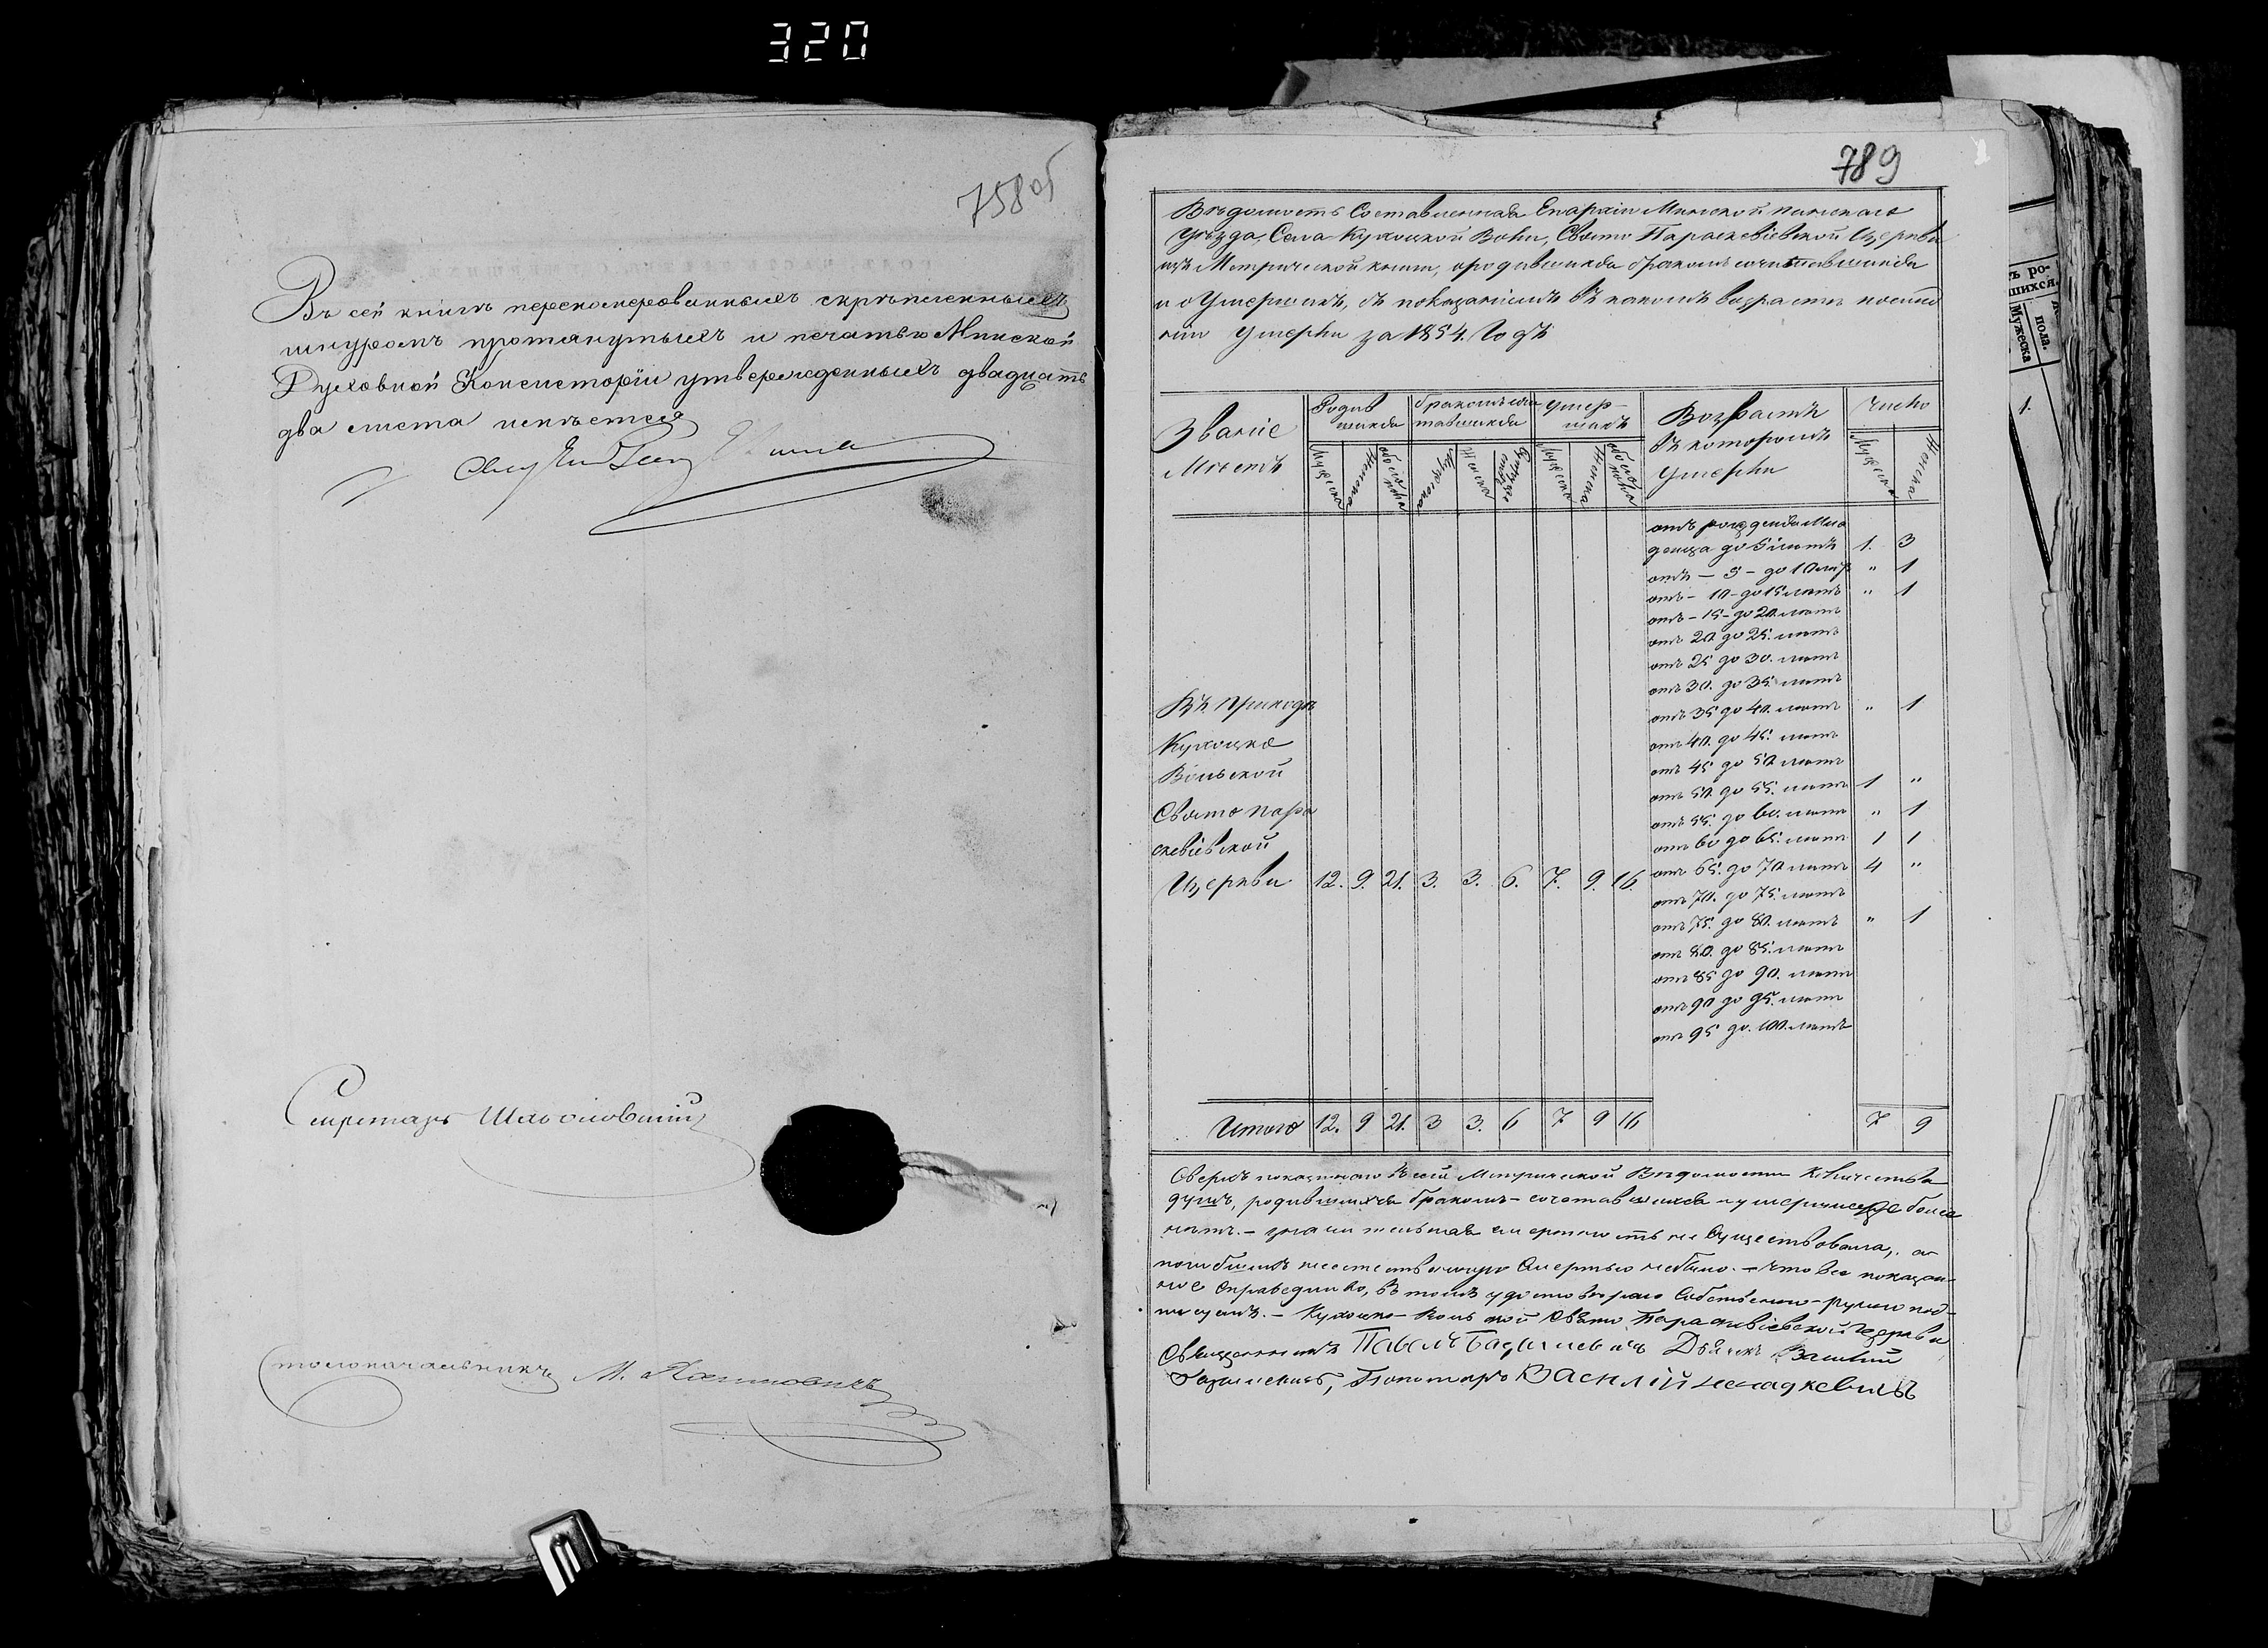 320
758 об
Въ сей книгѣ перенумерованныхъ скрѣпленныхъ
шнуромъ протянутыхъ и печатью Минской
Духовной Консисторіи утвержденныхъ двадцать
два листа имѣется
Секретарь
Столоначальникъ М.
789
Вѣдомость Составленная Епархіи Минской Пинскаго
Уѣзда, Села Кухоцкой Воли, Свято Параскевіевской Церкви
изъ Метрической книги, о родившихся бракомъ сочитавшихся
и о Умершихъ, съ показаніемъ въ какомъ возрастѣ
Умерли за 1854. Годъ
Званіе
Мѣстъ
Родив
шихся
бракомъ соче
тавшихся
умер-
шихъ
Возрастъ
въ которомъ
Умерли
Число
Мужеска
Женска
обоего пола
Мужеска
Женска
Мужеска
Женска
обоего пола
Мужеска
Женска
отъ рожденія Мла
денца до 5 лѣтъ 1. 3
отъ - 5 - до 10 лѣтъ " 1
отъ - 10 - до 15 лѣтъ " 1
отъ - 15 - до 20. лѣтъ
отъ 20 до 25. лѣтъ
отъ 25 до 30. лѣтъ
отъ 30. до 35. лѣтъ
отъ 35 до 40. лѣтъ " 1
отъ 40. до 45. лѣтъ
отъ 45 до 50 лѣтъ
отъ 50. до 55. лѣтъ 1 "
отъ 55. до 60. лѣтъ " 1
отъ 60 до 65. лѣтъ 1 1
отъ 65. до 70 лѣтъ 4 "
отъ 70. до 75. лѣтъ
отъ 75. до 80. лѣтъ " 1
отъ 80. до 85. лѣтъ
отъ 85 до 90. лѣтъ
отъ 90 до 95. лѣтъ
отъ 95 до. 100. лѣтъ
Въ Приходѣ
Кухоцко
Вольской
Свято Пара
скевіевской
Церкви 12. 9. 21. 3. 3. 6. 7. 9. 16.
Итого 12. 9 21. 3 3. 6 7 9 16 7 9
Сверхъ показаннаго въ сей Метрической Вѣдомости Количества
душъ, родившихся бракомъ - сочетавшихся - умершихъ болѣе
нѣтъ. - смертность не Существовала, а
погибшихъ неестественною Смертью небыло. - Что все показан-
ное Справедливо, въ томъ удостовѣряю Собственно-ручно под-
писомъ. - Кухоцко-Вольской Свято Параскевіевской Церкви
Священникъ Павелъ Базилевичъ Дьячекъ Василій
Базилевичъ, Пономарь Василій
ъ ро-
шихся.
пола.
Мужеска
1.